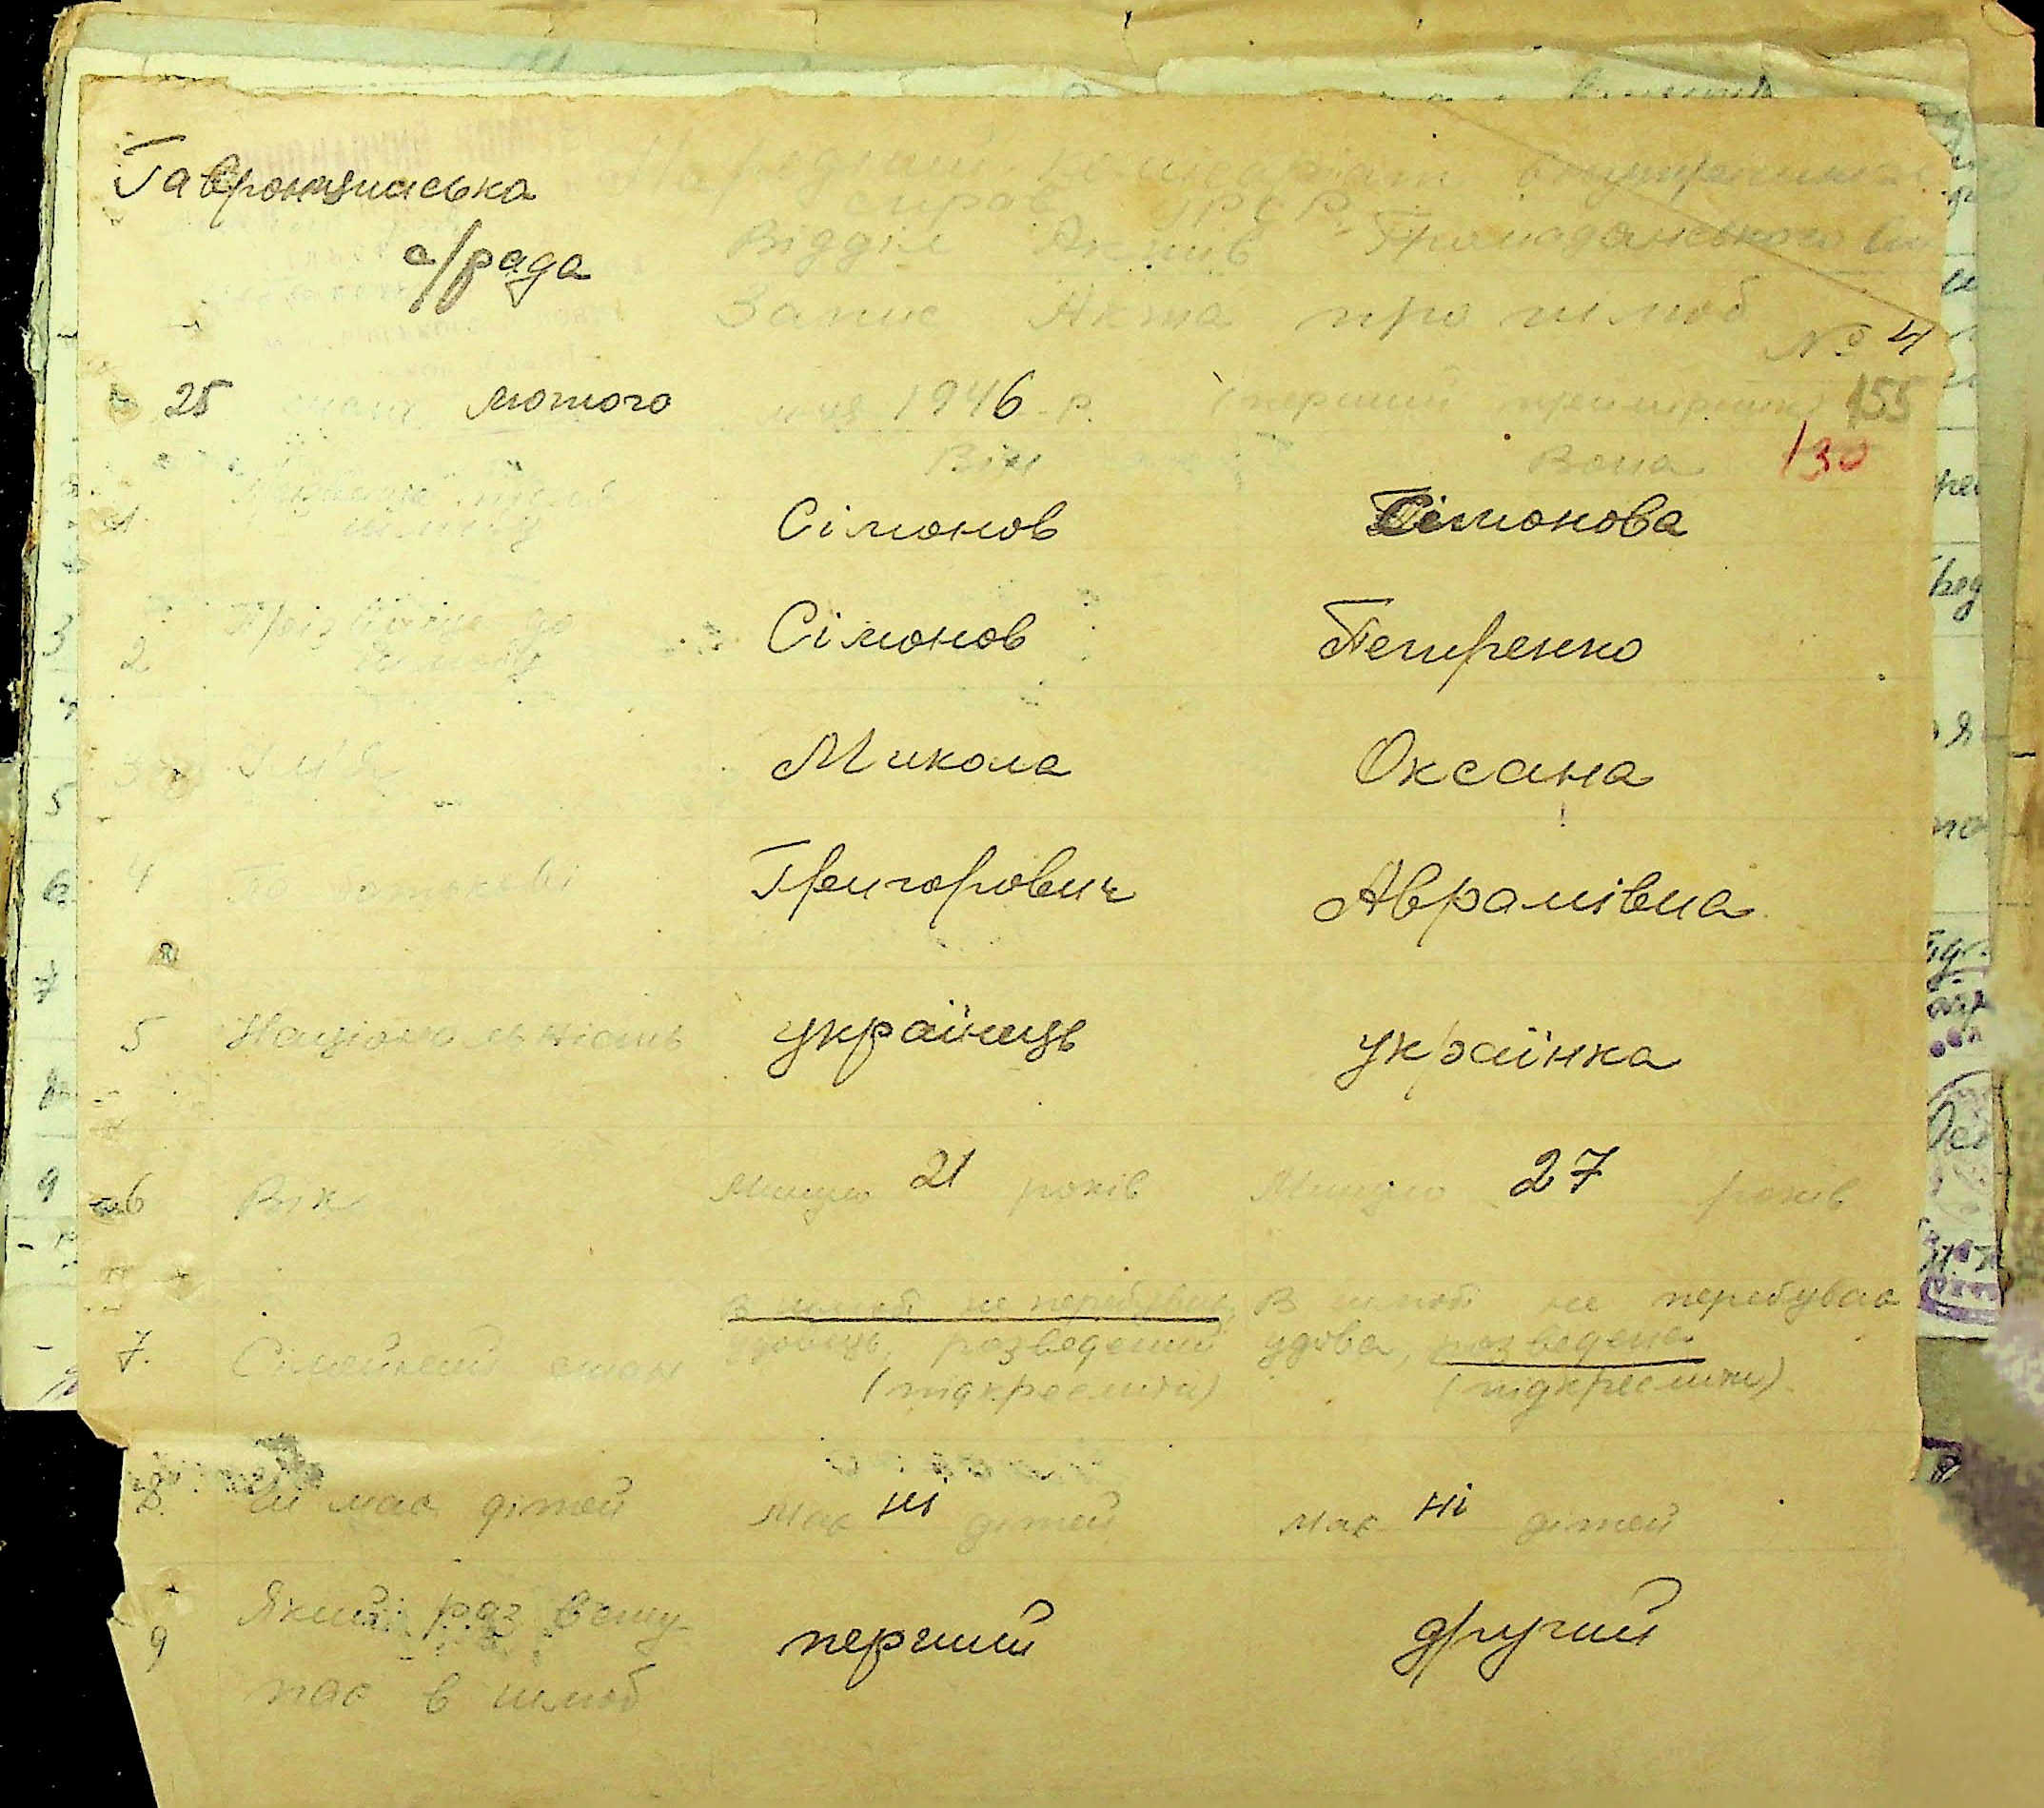 Гавронцинська
с/рада
Народний Комісаріат внутренних
справ УРСР
Відділ Актів Громадянського
Запис Акта про шлюб
№ 4
25 лютого м-ця 1946 р. (перший примірник) 155
Він Вона 130
1. Прізвище після шлюбу Сімонов Сімонова
2 Прізвище до шлюбу Сімонов Петренко
3 Ім'я Микола Оксана
4 По батькові Григорович Аврамівна
5 Національність українець українка
6 Вік Минуло 21 років Минуло 27 років
В шлюбі не перебував, В шлюбі не перебувала
7. Сімейний стан удовець, розведений удова, розведена
(підкреслити) (підкреслити)
8. Чи має дітей Має ні дітей Має ні дітей
9 Який раз всту-
пає в шлюб перший другий